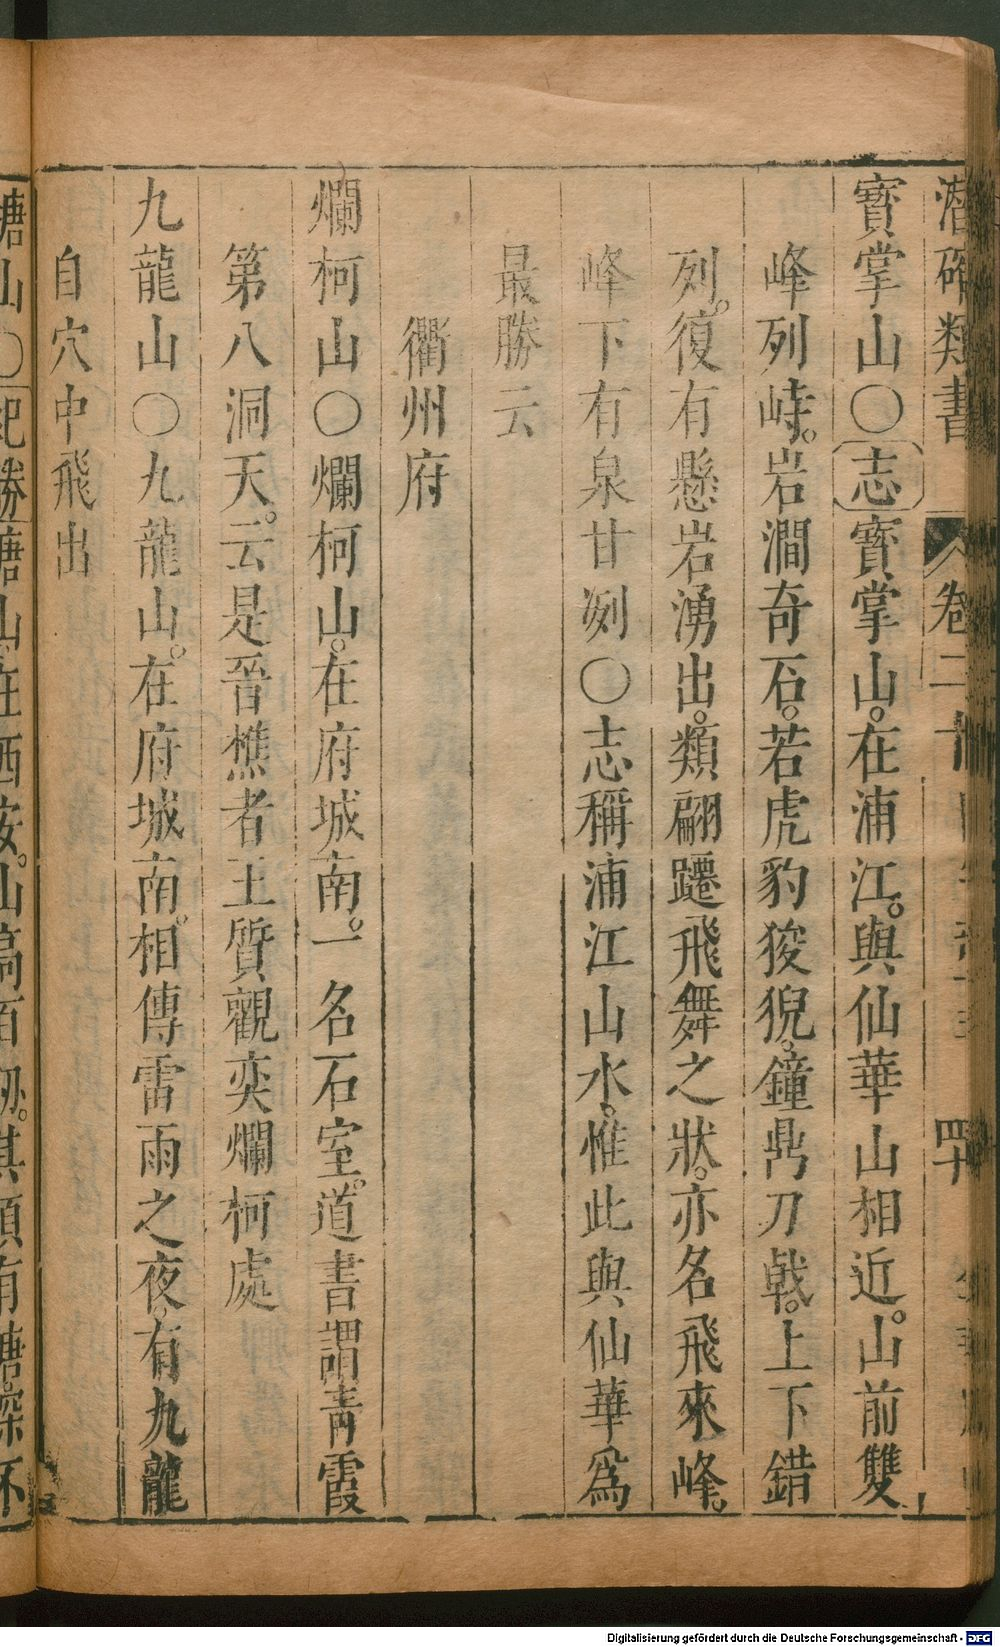 潛確類書 卷二十 四十
寶掌山○志寶掌山。在浦江。與仙華山相近。山前雙
峰列峙。岩澗奇石。若虎豹狻猊。鐘鼎刀戟。上下錯
列。復有懸岩湧出。類翩躚飛舞之狀。亦名飛來峰。
峰下有泉甘冽○志稱浦江山水。惟此與仙華爲
最勝云
衢州府
爛柯山○爛柯山。在府城南。一名石室。道書謂青霞
第八洞天。云是晉樵者王質觀奕爛柯處
九龍山○九龍山。在府城南。相傳雷雨之夜。有九龍
自穴中飛出
塘山○紀勝塘山。在西安。山高百仞。其頂有塘。深不
Digitalisierung gefördert durch die Deutsche Forschungsgemeinschaft - DFG